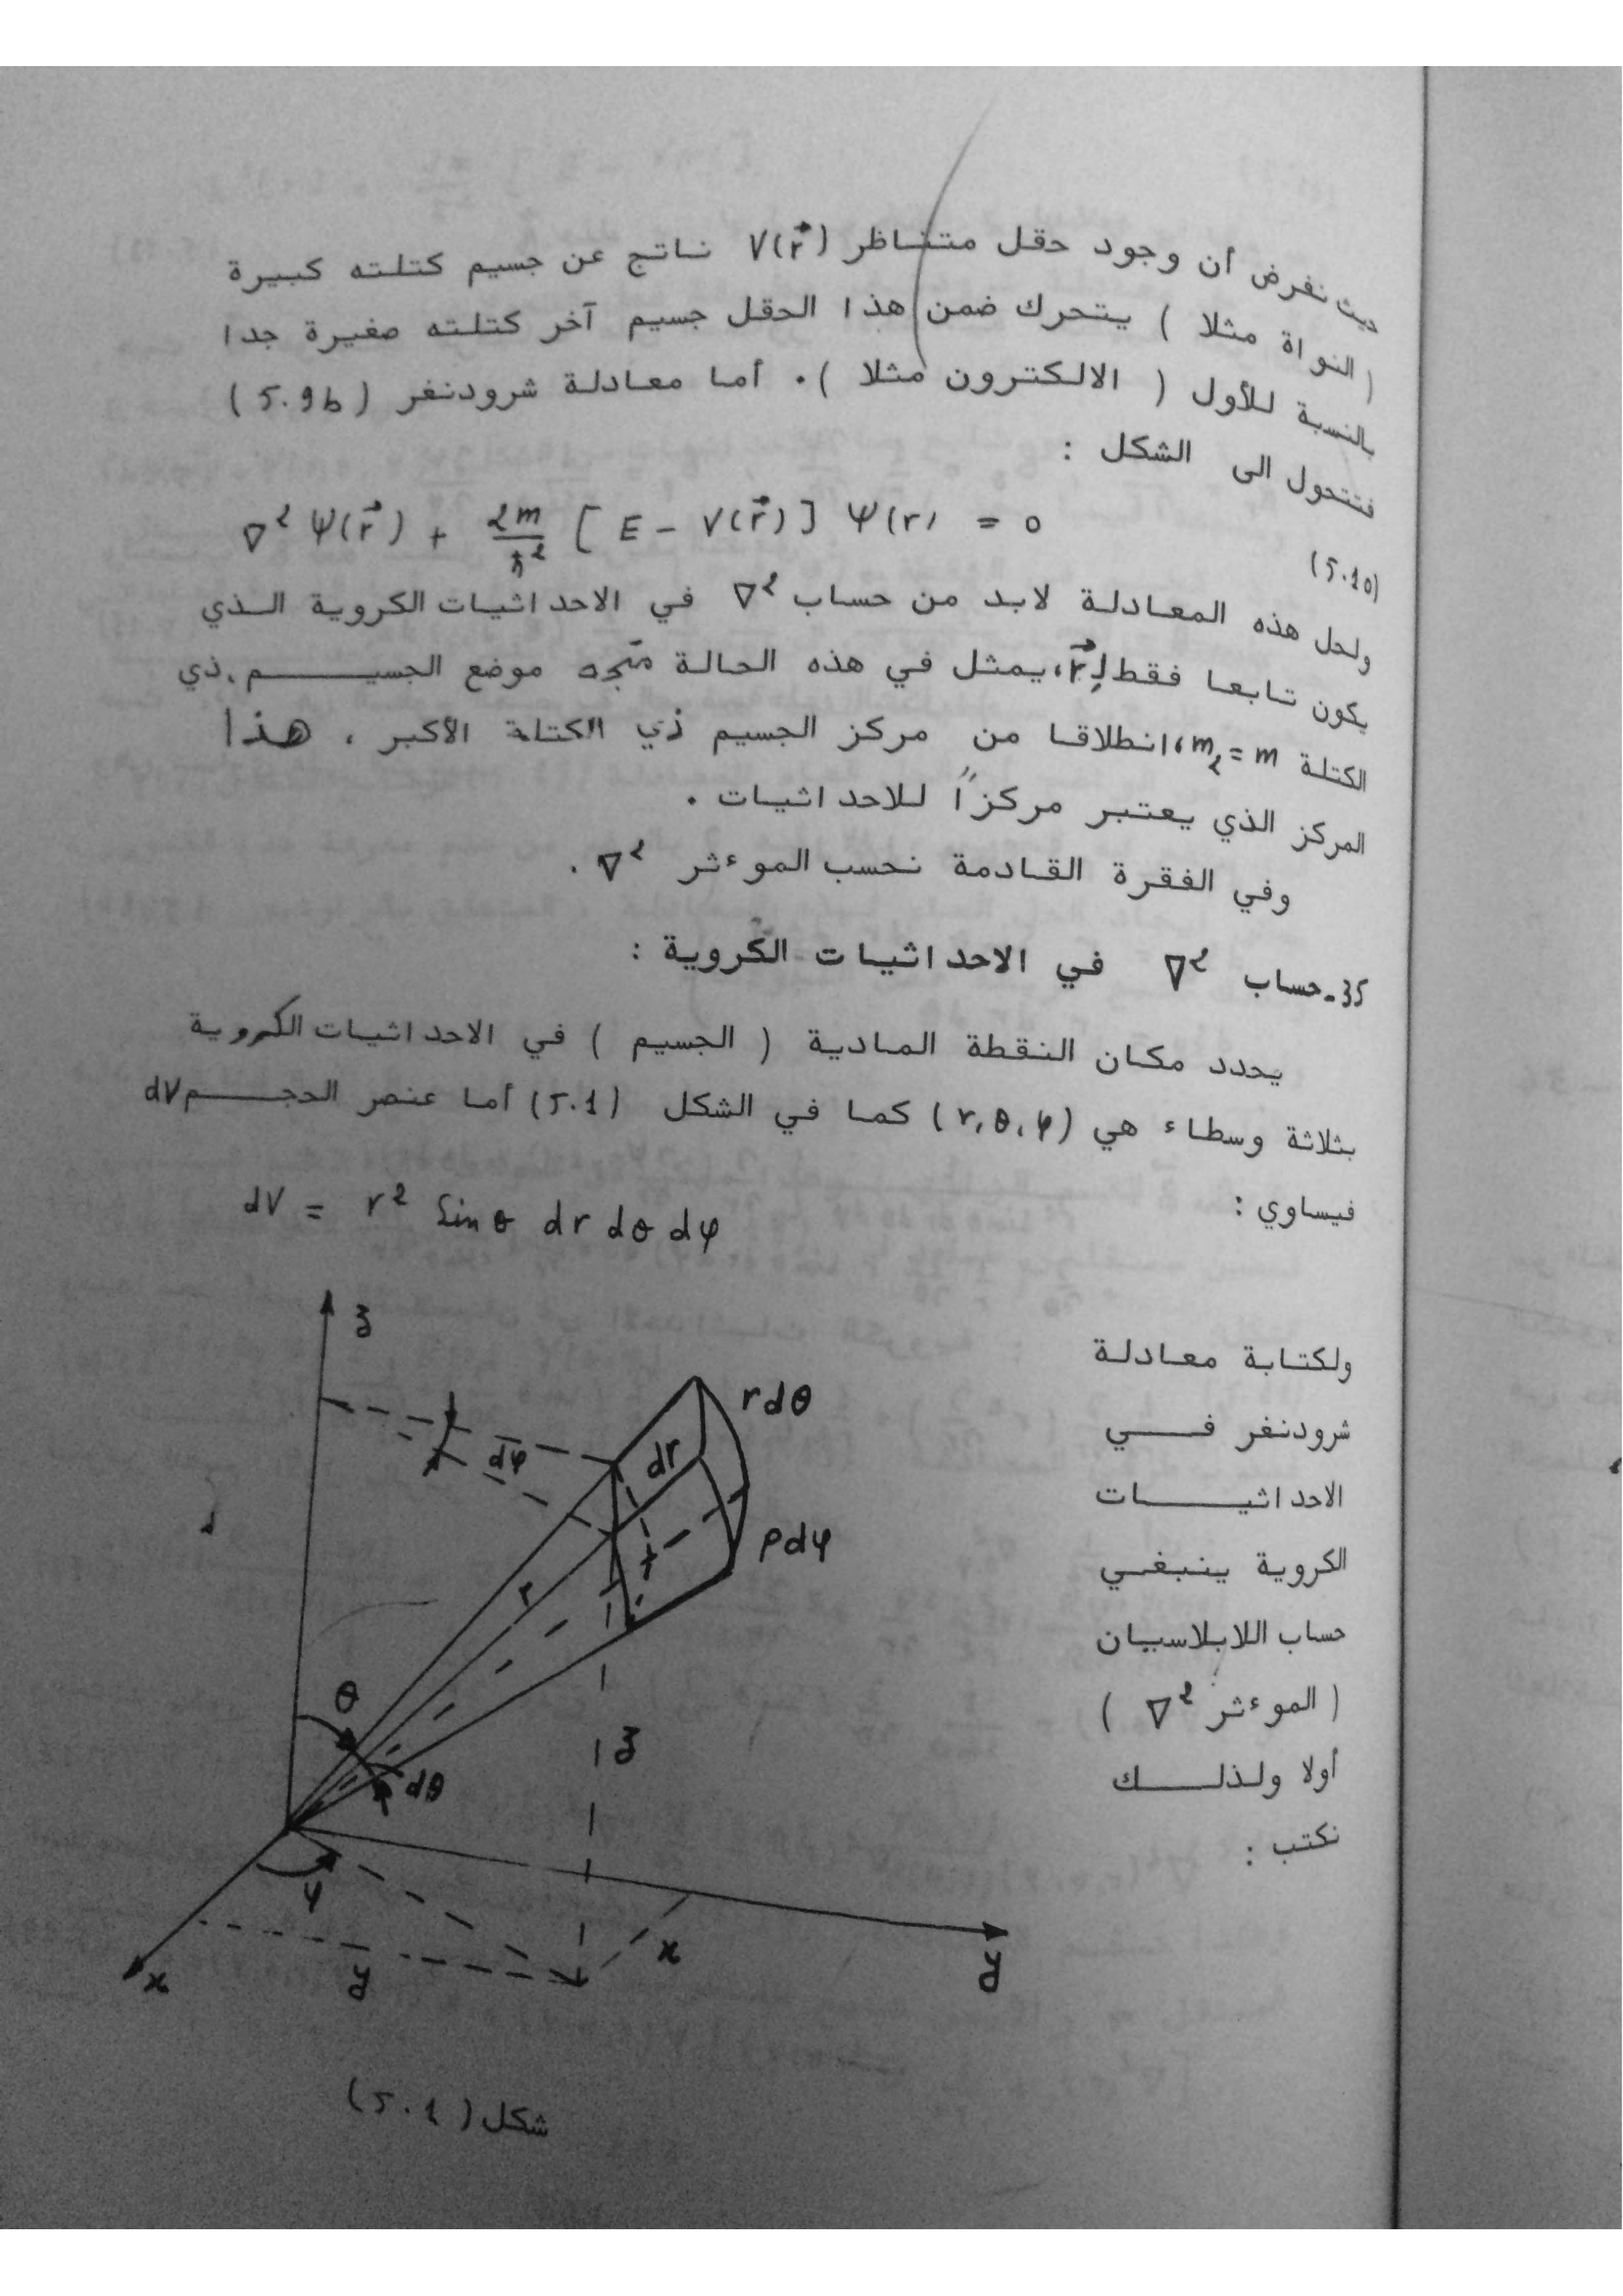 حيث نفرض أن وجود حقل متناظر V(r⃗) ناتج عن جسيم كتلته كبيرة
( النواة مثلا ) يتحرك ضمن هذا الحقل جسيم آخر كتلته صغيرة جدا
بالنسبة للأول ( الالكترون مثلا ) . أما معادلة شرودنغر (5.9b)
فتتحول الى الشكل :
∇² Ψ(r⃗) + 2m/ħ² [ E - V(r⃗) ] Ψ(r) = 0
(5.10)
ولحل هذه المعادلة لابد من حساب ∇² في الاحداثيات الكروية الذي
يكون تابعا فقط لـ r⃗، يمثل في هذه الحالة متجه موضع الجسيم، ذي
الكتلة m₂ = m، انطلاقا من مركز الجسيم ذي الكتلة الأكبر ، هذا
المركز الذي يعتبر مركزاً للاحداثيات .
وفي الفقرة القادمة نحسب الموءثر ∇² .
35-حساب ∇² في الاحداثيات الكروية :
يحدد مكان النقطة المادية ( الجسيم ) في الاحداثيات الكروية
بثلاثة وسطاء هي (r, θ, φ) كما في الشكل (5.1) أما عنصر الحجم dV
فيساوي :
dV = r² Sin θ dr dθ dφ
ولكتابة معادلة
شرودنغر في
الاحداثيات
الكروية ينبغي
حساب اللابلاسيان
( الموءثر ∇² )
أولا ولذلك
نكتب :
z
r dθ
dφ
dr
ρ dφ
r
θ
z
dθ
φ
x
x
y
y
شكل (5.1)